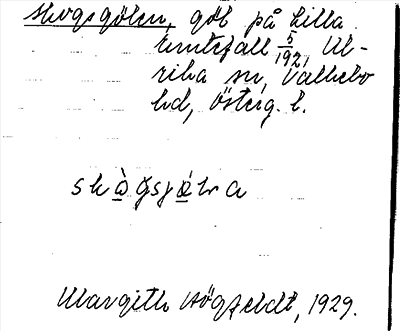 Skogsgölen, göl på Lilla
Emtefall 5/192, Ul-
rika sn, Valkebo
hd, Österg. l.
skò̲gsjö̲lra
Margith Högfeldt, 1929.